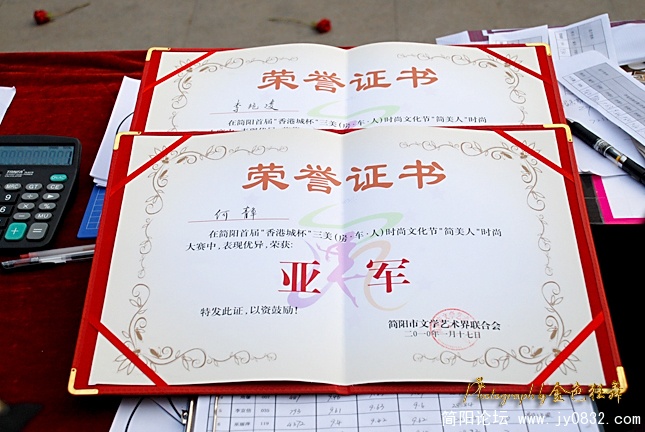 荣誉证书
李琬凌
在简阳首届"香港城杯"三美(房·车·人)时尚文化节"简美人"时尚
荣誉证书
何静
在简阳首届"香港城杯"三美(房·车·人)时尚文化节"简美人"时尚
大赛中,表现优异,荣获:
亚军
特发此证,以资鼓励!
简阳市文学艺术界联合会
二〇一〇年一月十七日
Photography金色经典
简阳论坛 www.jy0832.com